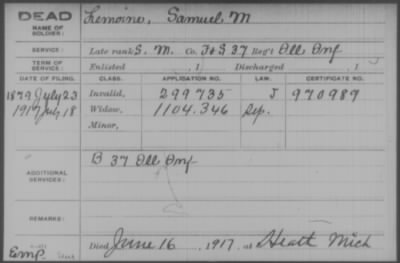 DEAD
NAME OF SOLDIER: Lemoine, Samuel M
SERVICE: Late rank S. M. Co. F & S 37 Reg't Ill Inf
TERM OF SERVICE: Enlisted , 1 Discharged , 1
DATE OF FILING. CLASS. APPLICATION NO. LAW. CERTIFICATE NO.
1879 July 23 Invalid, 299735 J 970989
1917 July 18 Widow, 1104.346 Sep.
Minor,
ADDITIONAL SERVICES: B 37 Ill Inf
REMARKS:
Died June 16, 1917, at Mich